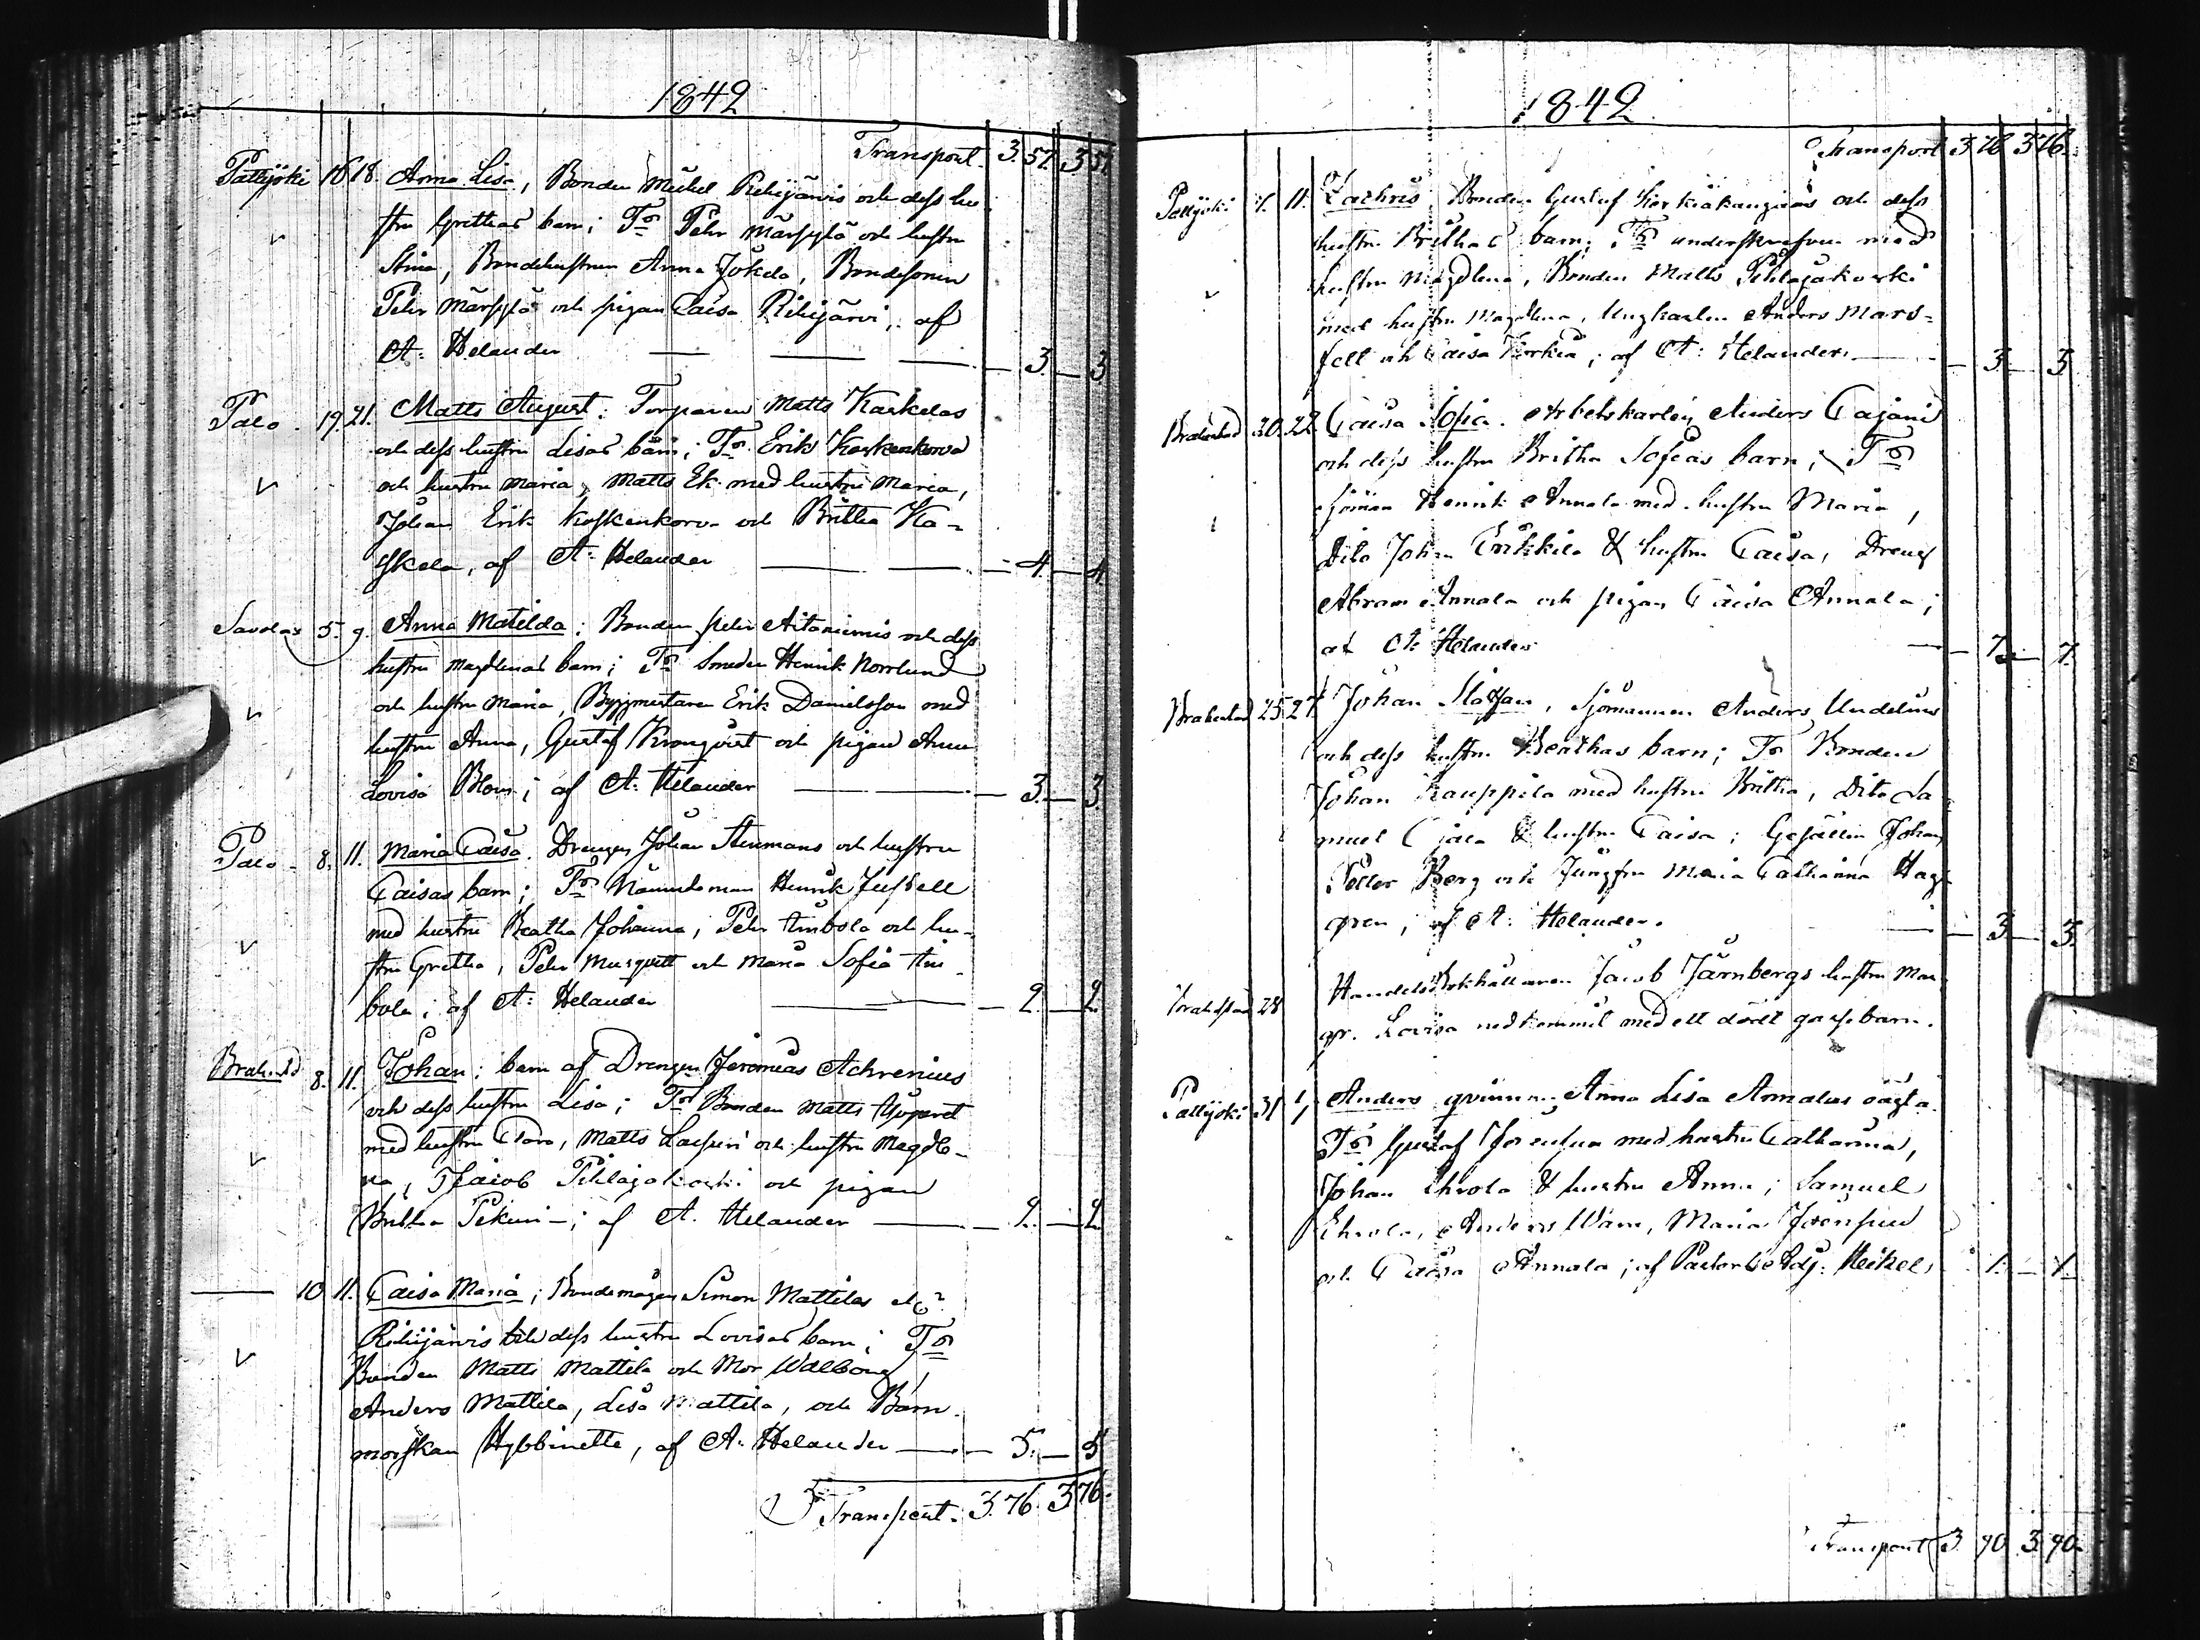 1842
Transport. 3. 57. 3 57.
Pattijoki 16 18. Anna Lisa, Bonden Michel Rihijärvis och dess hu
stru Grethas barn; Tr Pehr Märsylä och hustru
Stina, Bondehustrun Anna Jokela, Bondesonen
Pehr Märsylä och pigan Caisa Rihijärvi, af
A: Helander — — — 3. — 3
Palo. 19. 21. Matts August; Torparen Matts Kaskelas
och dess hustru Lisas barn; Tr Erik Koskenkorva
och hustru Maria, Matts Ek med hustru Maria,
Johan Erik Koskenkorva och Britha Ka-
skela, af A: Helander — — 4. — 4.
Savolax 5. 9. Anna Matilda; Bonden Pehr Aitaniemis och dess
hustru Magdlenas barn; Tr Smeden Henrik Norrlund
och hustru Maria, Byggmästaren Erik Danielsson med
hustru Anna, Gustaf Kronqvist och pigan Anna
Lovisa Blom; af A: Helander — — 3. — 3.
Palo - 8. 11. Maria Caisa. Drengen Johan Stenmans och hustru
Caisas barn; Tr Nämndeman Henrik Jufvell
med hustru Beatha Johanna, Pehr Ambola och hu-
stru Gretha, Pehr Murqvist och Maria Sofia Am
bola; af A: Helander — 2. — 2.
Brahestad 8. 11. Johan; barn af Drengen Jeremias Achrenius
och dess hustru Lisa; Tr Bonden Matts
med hustru Clara, Matts Lasseri och hustru Magdle-
na, Jacob Pihlajakoski och pigan
Britha Pekuri -; af A. Helander — 2. — 2.
— 10 11. Caisa Maria; Bondemågen Simon Mattilas
Rihijärvis och dess hustru Lovisas barn; Tr
Bonden Matts Mattila och Mor Walborg,
Anders Mattila, Lisa Mattila, och Barn
morskan Hybbinette, af A. Helander — 5. — 5
Transport. 3. 76. 3 76.
1842
Transport 3 76 3 76.
Pattijoki 7. 11. Zachris, Bonden Gustaf Korkiakangas och dess
hustru Brithas barn; Tr underskrefven med
hustru Magdlena, Bonden Matts Pihlajakoski
med hustru Magdlena, Ungkarlen Anders Mars-
felt och Caisa Korkia; af A: Helander. — 3 — 3
Brahestad 20. 22 Caisa Sofia. Arbetskarlen Anders Cajani
och dess hustru Britha Sofias barn; Tr
Sjöman Henrik Annala med hustru Maria,
Dito Johan Erikkila & hustru Caisa, Dreng
Abram Annala och pigan Caisa Annala;
af A: Helander — 7. — 7.
Brahestad 25 27 Johan Staffan, Sjömannen Anders Undelins
och dess hustru Beathas barn; Tr Bonden
Johan Kauppila med hustru Britha, Dito Sa
muel Ojala & hustru Caisa; Gesällen Johan
Petter Berg och Jungfru Maria Catharina Hag
gren; af A: Helander. — 3. — 3.
Brahestad 28 Handels Bokhållaren Jacob Järnbergs hustru Mar
gr. Lovisa nedkommit med ett dödt gossebarn.
Pattijoki 31 1/ Anders qvinnan Anna Lisa Annalas oägta.
Tr Gustaf med hustru Catharina,
Johan Ehrola & hustru Anna; Samuel
Ehrola, Anders Wäre, Maria
och Caisa Annala; af Pastors Adj: Heikel 1. — 1.
Transport 3 90 3 90.